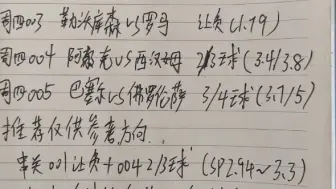 周四003 勒沃库森VS罗马 让负(1.79)
周四004 阿森纳VS西汉姆 2/3球(3.4/3.8)
周四005 巴塞尔VS佛罗伦萨 3/4球(3.7/5)
推荐仅供参考方向..
串关001让负+004 2/3球(SP2.94~3.3)